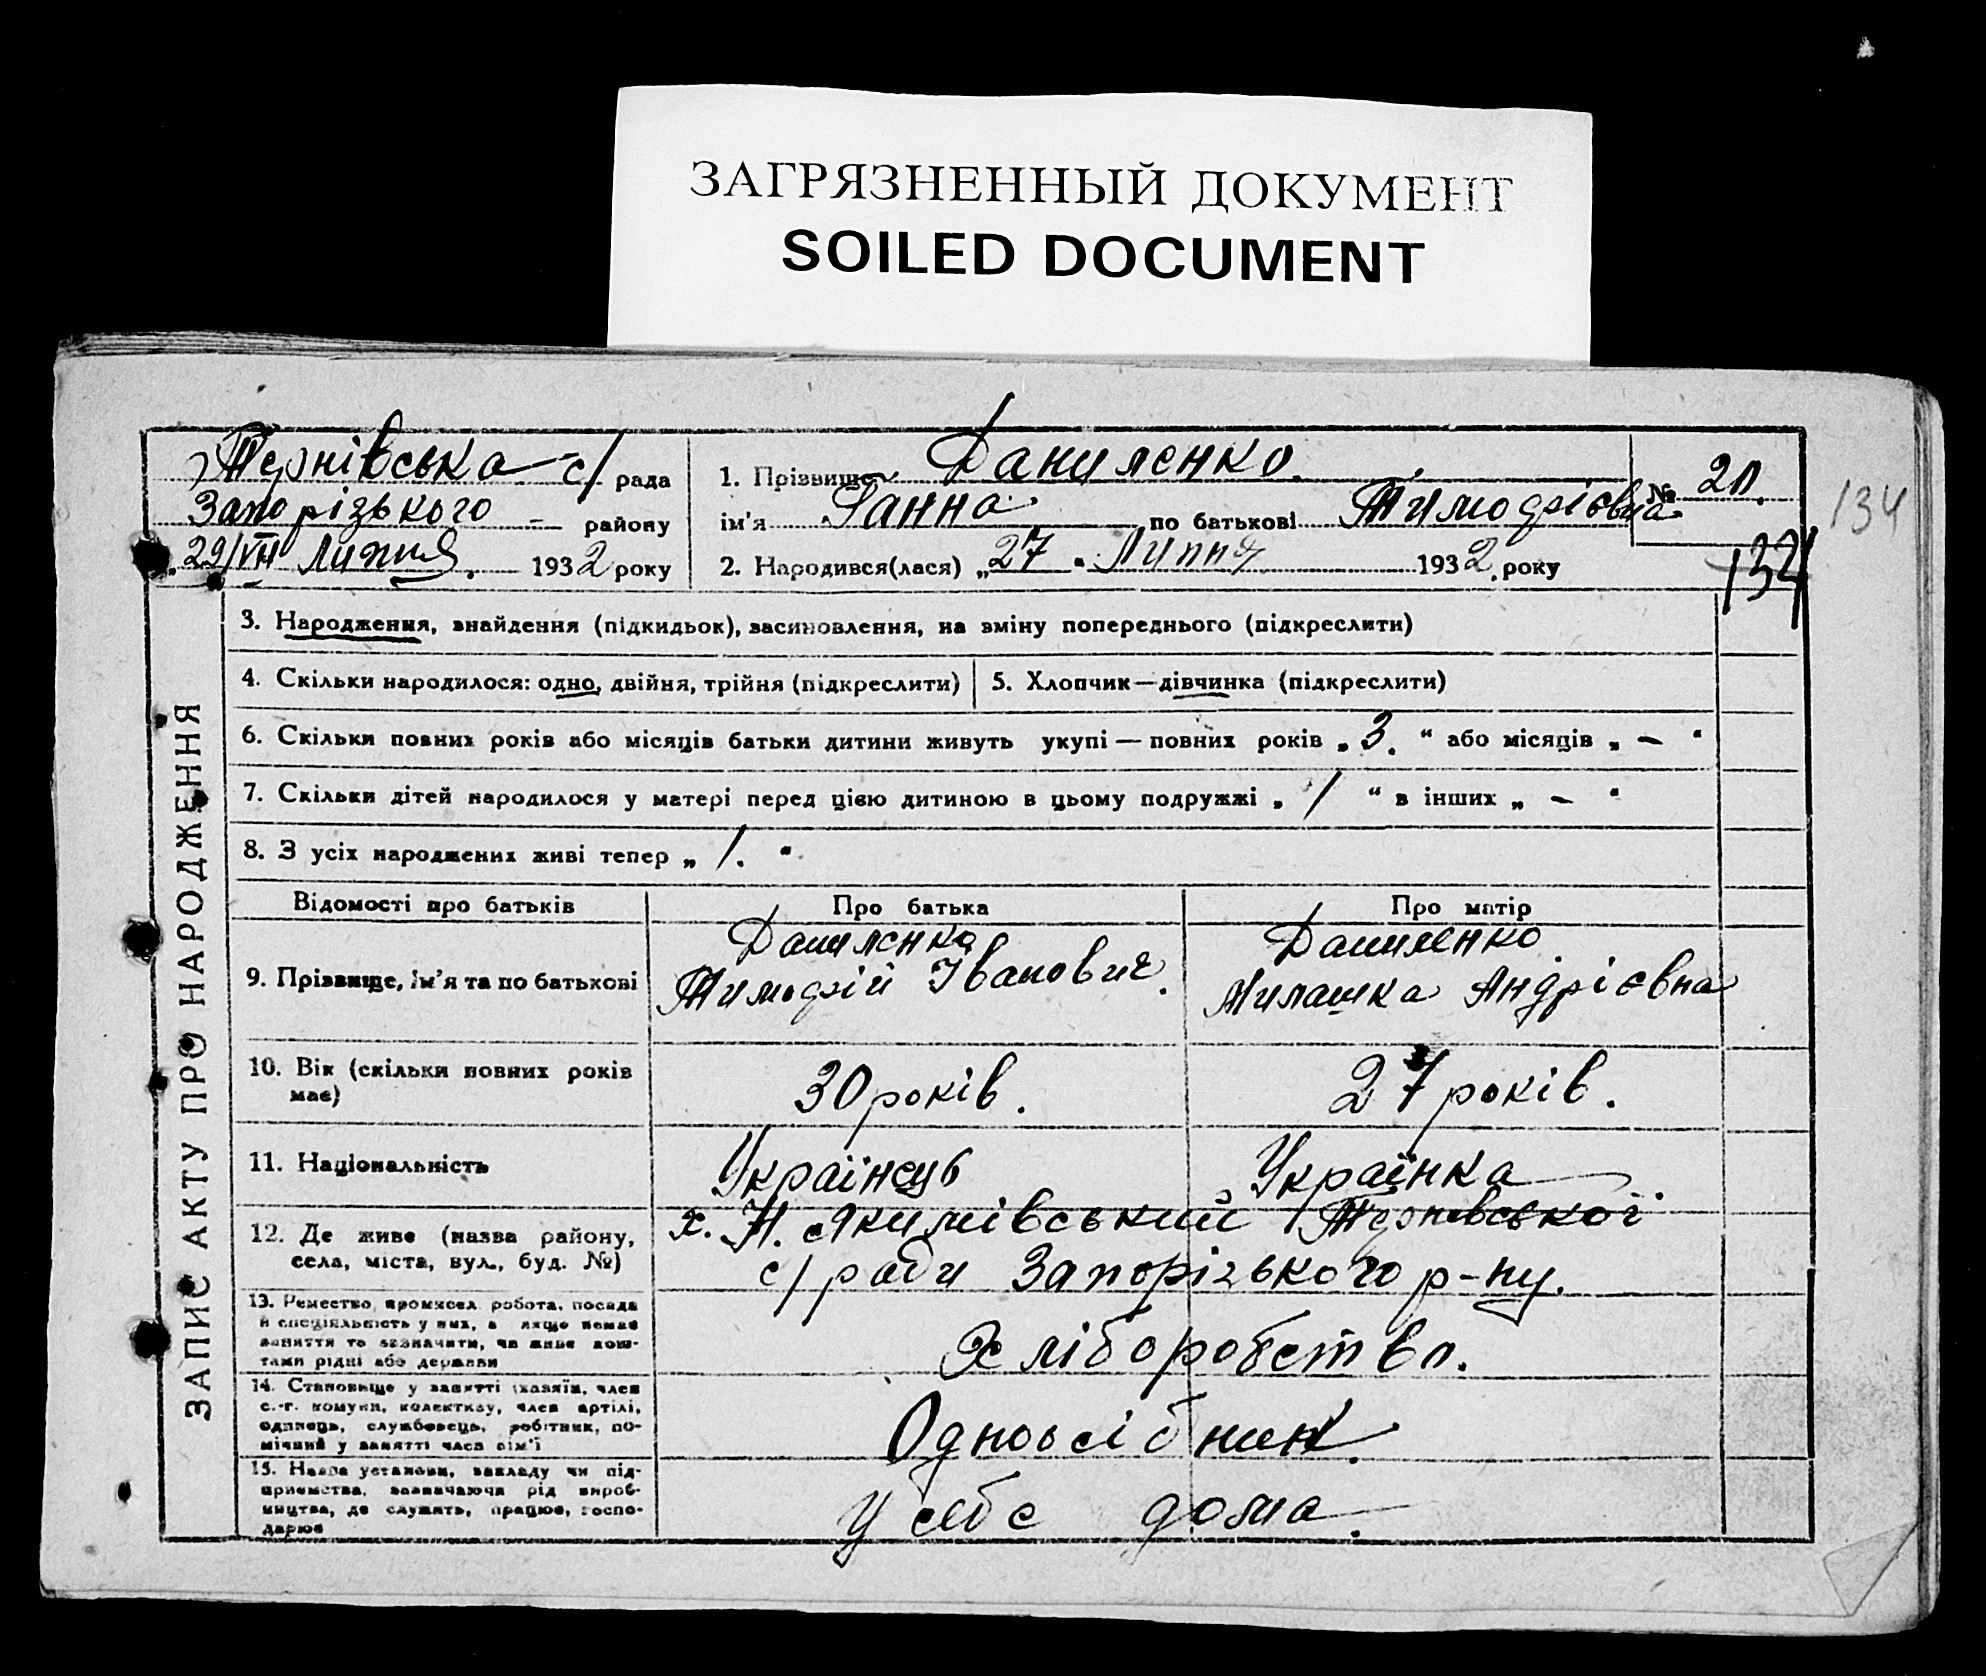 ЗАГРЯЗНЕННЫЙ ДОКУМЕНТ
SOILED DOCUMENT
134
Тернівська с/ рада
Запорізького району
29/VII Липня. 1932 року
1. Прізвище Даниленко
ім'я Ганна по батькові Тимофієвна
№ 20.
134
2. Народився(лася) „27" Липня 1932 року
ЗАПИС АКТУ ПРО НАРОДЖЕННЯ
3. Народження, знайдення (підкидьок), засиновлення, на зміну попереднього (підкреслити)
4. Скільки народилося: одно, двійня, трійня (підкреслити)
5. Хлопчик—дівчинка (підкреслити)
6. Скільки повних років або місяців батьки дитини живуть укупі — повних років „ 3. " або місяців „ — "
7. Скільки дітей народилося у матері перед цією дитиною в цьому подружжі „ 1 " в інших „ — "
8. З усіх народжених живі тепер „ 1. "
Відомості про батьків
Про батька
Про матір
9. Прізвище, ім'я та по батькові
Даниленко
Тимофій Іванович.
Даниленко
Милашка Андрієвна
10. Вік (скільки повних років має)
30 років.
27 років.
11. Національність
Українець
Українка
12. Де живе (назва району,
села, міста, вул., буд. №)
х. Н. Якимівський Тернівської
с/ради Запорізького р-ну.
13. Ремество, промисел, робота, посада
й спеціяльність у них, а якщо немає
заняття то зазначити, чи живе кош-
тами рідні або держави
Хліборобство.
14. Становище у занятті (хазяїн, член
с.-г. комуни, колективу, член артілі,
одинець, службовець, робітник, по-
мічний у занятті член сім'ї
Одноосібник.
15. Назва установи, закладу чи під-
приємства, зазначаючи рід вироб-
ництва, де служить, працює, госпо-
дарює
У себе дома.